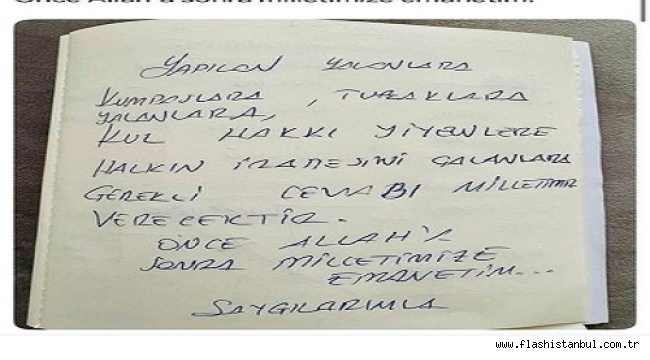 Önce Allah'a sonra milletimize emanetim.
YAPILAN YALANLARA
KUMPASLARA, TUZAKLARA
YALANLARA,
KUL HAKKI YİYENLERE
HALKIN İRADESİNİ ÇALANLARA
GEREKLİ CEVABI MİLLETİMİZ
VERECEKTİR.
ÖNCE ALLAH'A
SONRA MİLLETİMİZE
EMANETİM...
SAYGILARIMLA
www.flashistanbul.com.tr